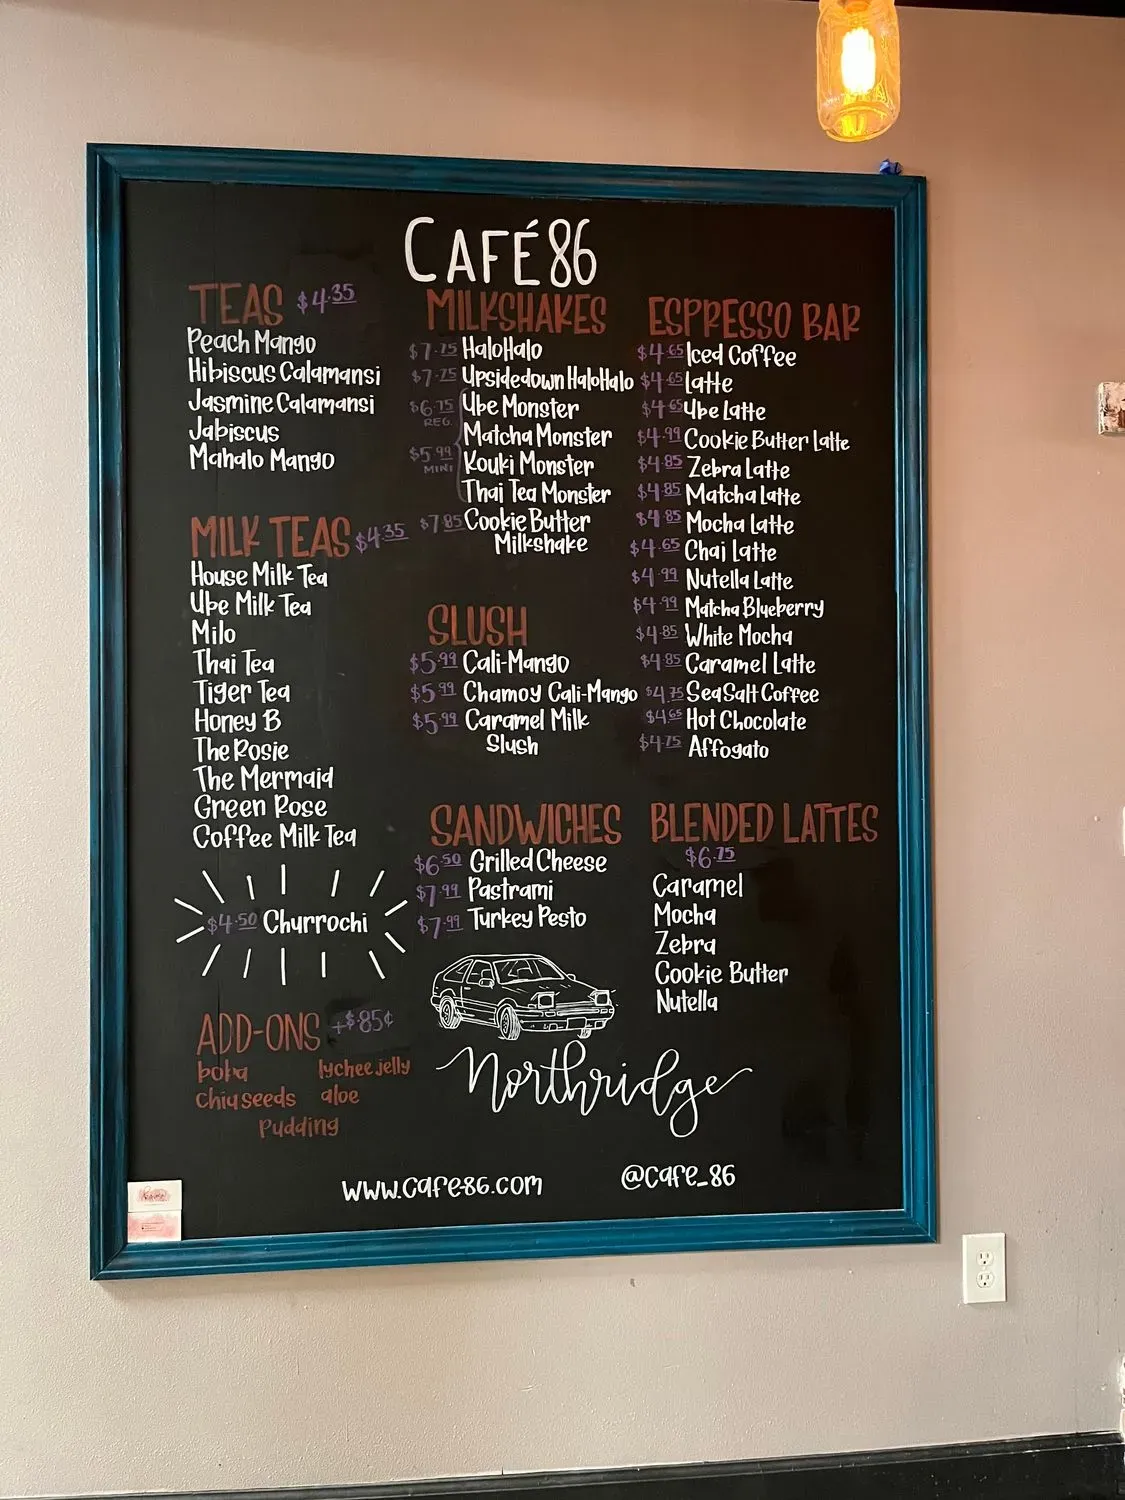 CAFÉ 86
TEAS $4.35
Peach Mango
Hibiscus Calamansi
Jasmine Calamansi
Jabiscus
Mahalo Mango
MILK TEAS $4.35
House Milk Tea
Ube Milk Tea
Milo
Thai Tea
Tiger Tea
Honey B
The Rosie
The Mermaid
Green Rose
Coffee Milk Tea
$4.50 Churrochi
ADD-ONS +$.85¢
boba lychee jelly
chia seeds aloe
pudding
MILKSHAKES
$7.75 HaloHalo
$7.75 Upsidedown HaloHalo
$6.75 Ube Monster
REG.
Matcha Monster
$5.99 Kouki Monster
MINI
Thai Tea Monster
$7.85 Cookie Butter
Milkshake
SLUSH
$5.99 Cali-Mango
$5.99 Chamoy Cali-Mango
$5.99 Caramel Milk
Slush
SANDWICHES
$6.50 Grilled Cheese
$7.99 Pastrami
$7.99 Turkey Pesto
ESPRESSO BAR
$4.65 Iced Coffee
$4.65 Latte
$4.65 Ube Latte
$4.99 Cookie Butter Latte
$4.85 Zebra Latte
$4.85 Matcha Latte
$4.85 Mocha Latte
$4.65 Chai Latte
$4.99 Nutella Latte
$4.99 Matcha Blueberry
$4.85 White Mocha
$4.85 Caramel Latte
$4.75 SeaSalt Coffee
$4.65 Hot Chocolate
$4.75 Affogato
BLENDED LATTES
$6.75
Caramel
Mocha
Zebra
Cookie Butter
Nutella
Northridge
www.cafe86.com
@cafe_86